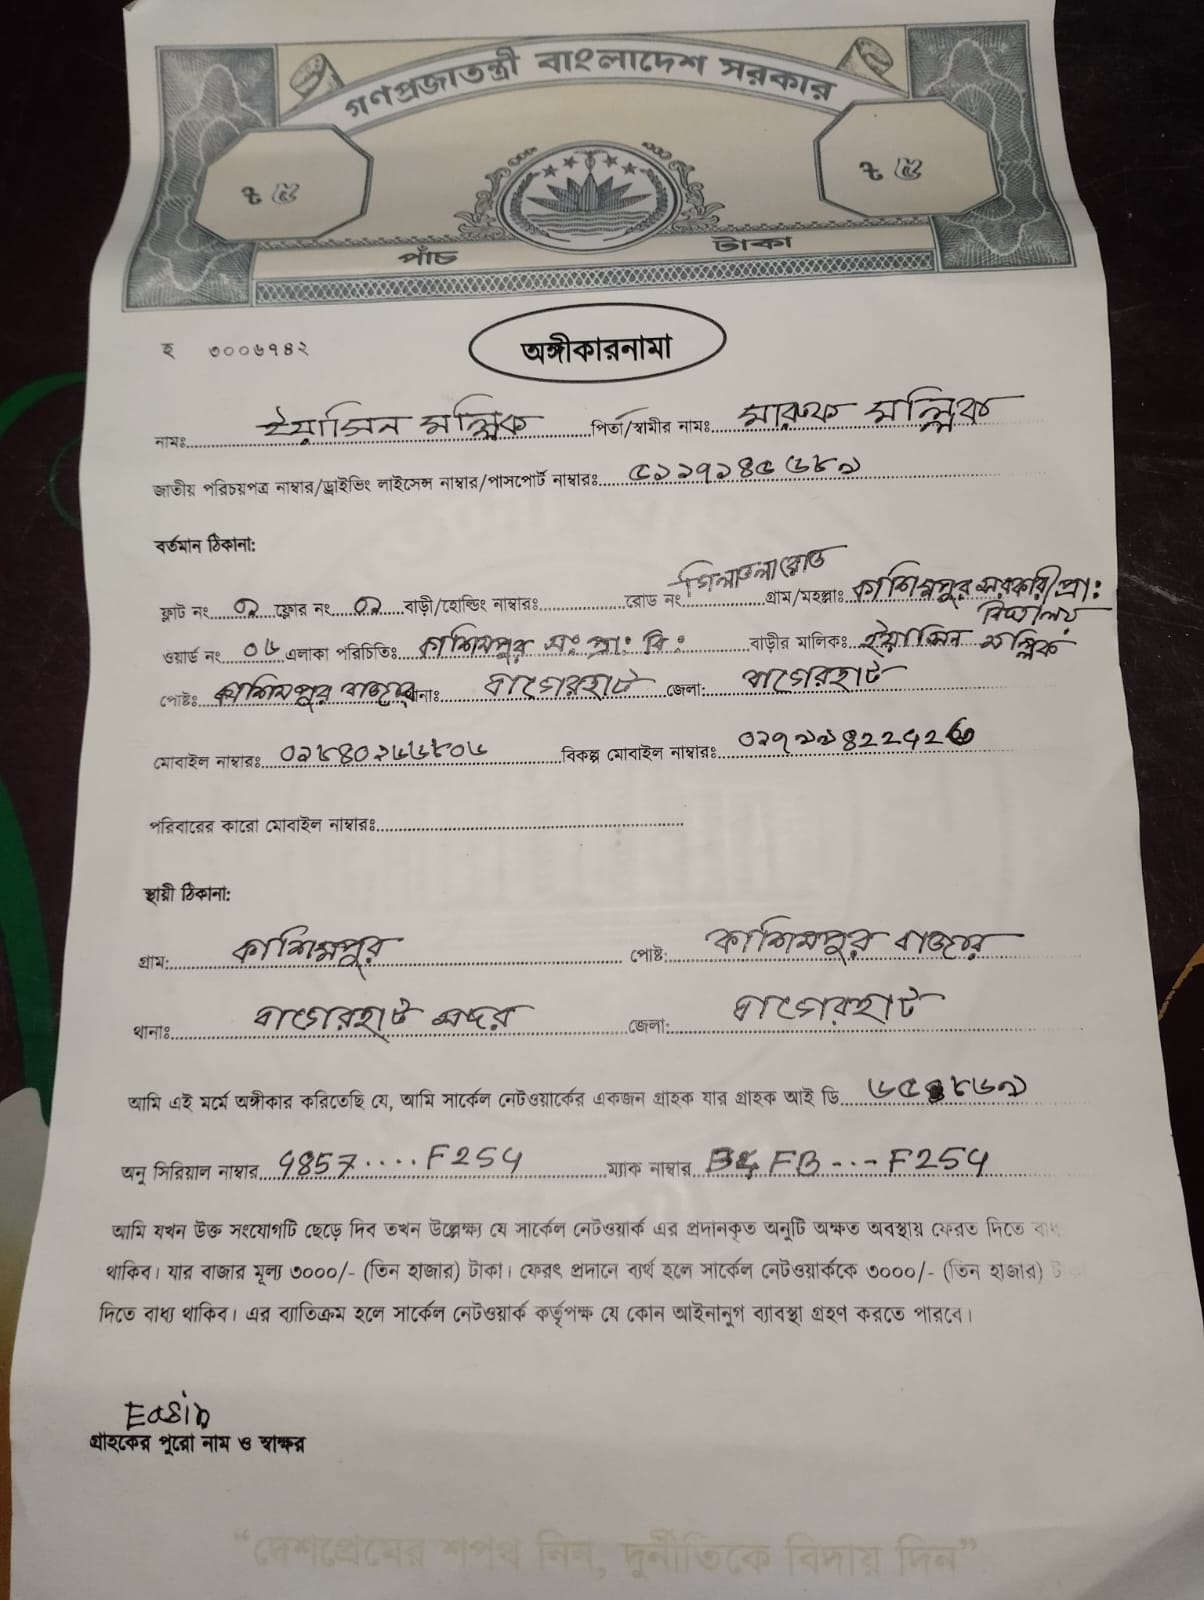 গণপ্রজাতন্ত্রী বাংলাদেশ সরকার
৳ ৫ ৳ ৫
পাঁচ টাকা
হ ৩০০৬৭৪২
অঙ্গীকারনামা
নামঃ ইয়াসিন মল্লিক পিতা/স্বামীর নামঃ মারুফ মল্লিক
জাতীয় পরিচয়পত্র নাম্বার/ড্রাইভিং লাইসেন্স নাম্বার/পাসপোর্ট নাম্বারঃ ৫১১৭১৪৫৬৮৯
বর্তমান ঠিকানা:
ফ্লাট নং ০১ ফ্লোর নং ০১ বাড়ী/হোল্ডিং নাম্বারঃ রোড নং গিলাতলা রোড গ্রাম/মহল্লাঃ কাশিমপুর সরকারী প্রা: বিদ্যালয়
ওয়ার্ড নং ০৬ এলাকা পরিচিতিঃ কাশিমপুর সঃ প্রা: বি: বাড়ীর মালিকঃ ইয়াসিন মল্লিক
পোষ্টঃ কাশিমপুর বাজার থানাঃ বাগেরহাট জেলা: বাগেরহাট
মোবাইল নাম্বারঃ ০১৮৪০২৬৬৮০৬ বিকল্প মোবাইল নাম্বারঃ
পরিবারের কারো মোবাইল নাম্বারঃ
স্থায়ী ঠিকানা:
গ্রাম: কাশিমপুর পোষ্ট: কাশিমপুর বাজার
থানাঃ বাগেরহাট সদর জেলা: বাগেরহাট
আমি এই মর্মে অঙ্গীকার করিতেছি যে, আমি সার্কেল নেটওয়ার্কের একজন গ্রাহক যার গ্রাহক আই ডি
অনু সিরিয়াল নাম্বার 4857....F254 ম্যাক নাম্বার FB---F254
আমি যখন উক্ত সংযোগটি ছেড়ে দিব তখন উল্লেক্ষ্য যে সার্কেল নেটওয়ার্ক এর প্রদানকৃত অনুটি অক্ষত অবস্থায় ফেরত দিতে বাধ্য
থাকিব। যার বাজার মূল্য ৩০০০/- (তিন হাজার) টাকা। ফেরৎ প্রদানে ব্যর্থ হলে সার্কেল নেটওয়ার্ককে ৩০০০/- (তিন হাজার) টাকা
দিতে বাধ্য থাকিব। এর ব্যাতিক্রম হলে সার্কেল নেটওয়ার্ক কর্তৃপক্ষ যে কোন আইনানুগ ব্যাবস্থা গ্রহণ করতে পারবে।
Easin
গ্রাহকের পুরো নাম ও স্বাক্ষর
“দেশপ্রেমের শপথ নিন, দুর্নীতিকে বিদায় দিন”